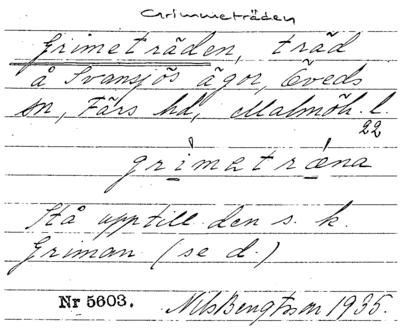 Grimmeträden
Grimeträden, träd
å Svansjös ägor, Öveds
sn, Färs hd, Malmöh. l.
22
grimətræna
Stå upp till den s. k.
Griman (se d.)
Nr 5603. Nils Bengtsson 1935.